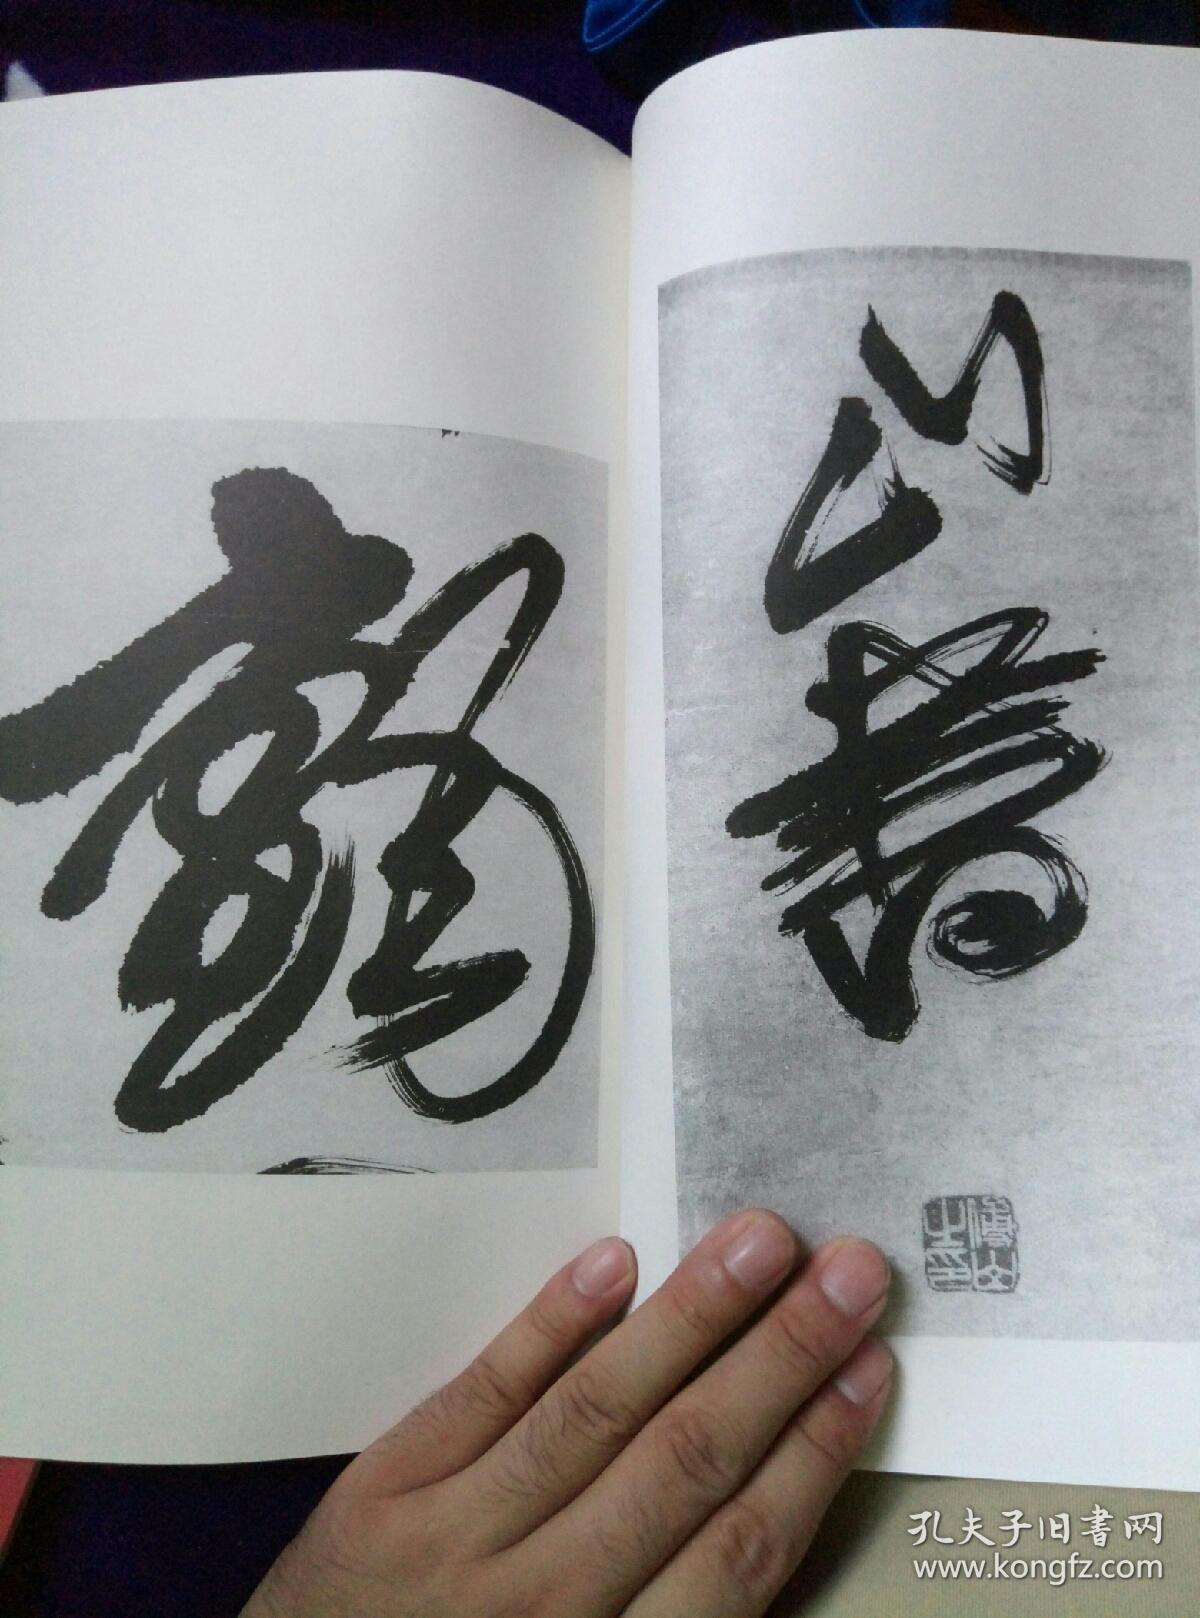 山書
傅山
之印
孔夫子旧書网
www.kongfz.com